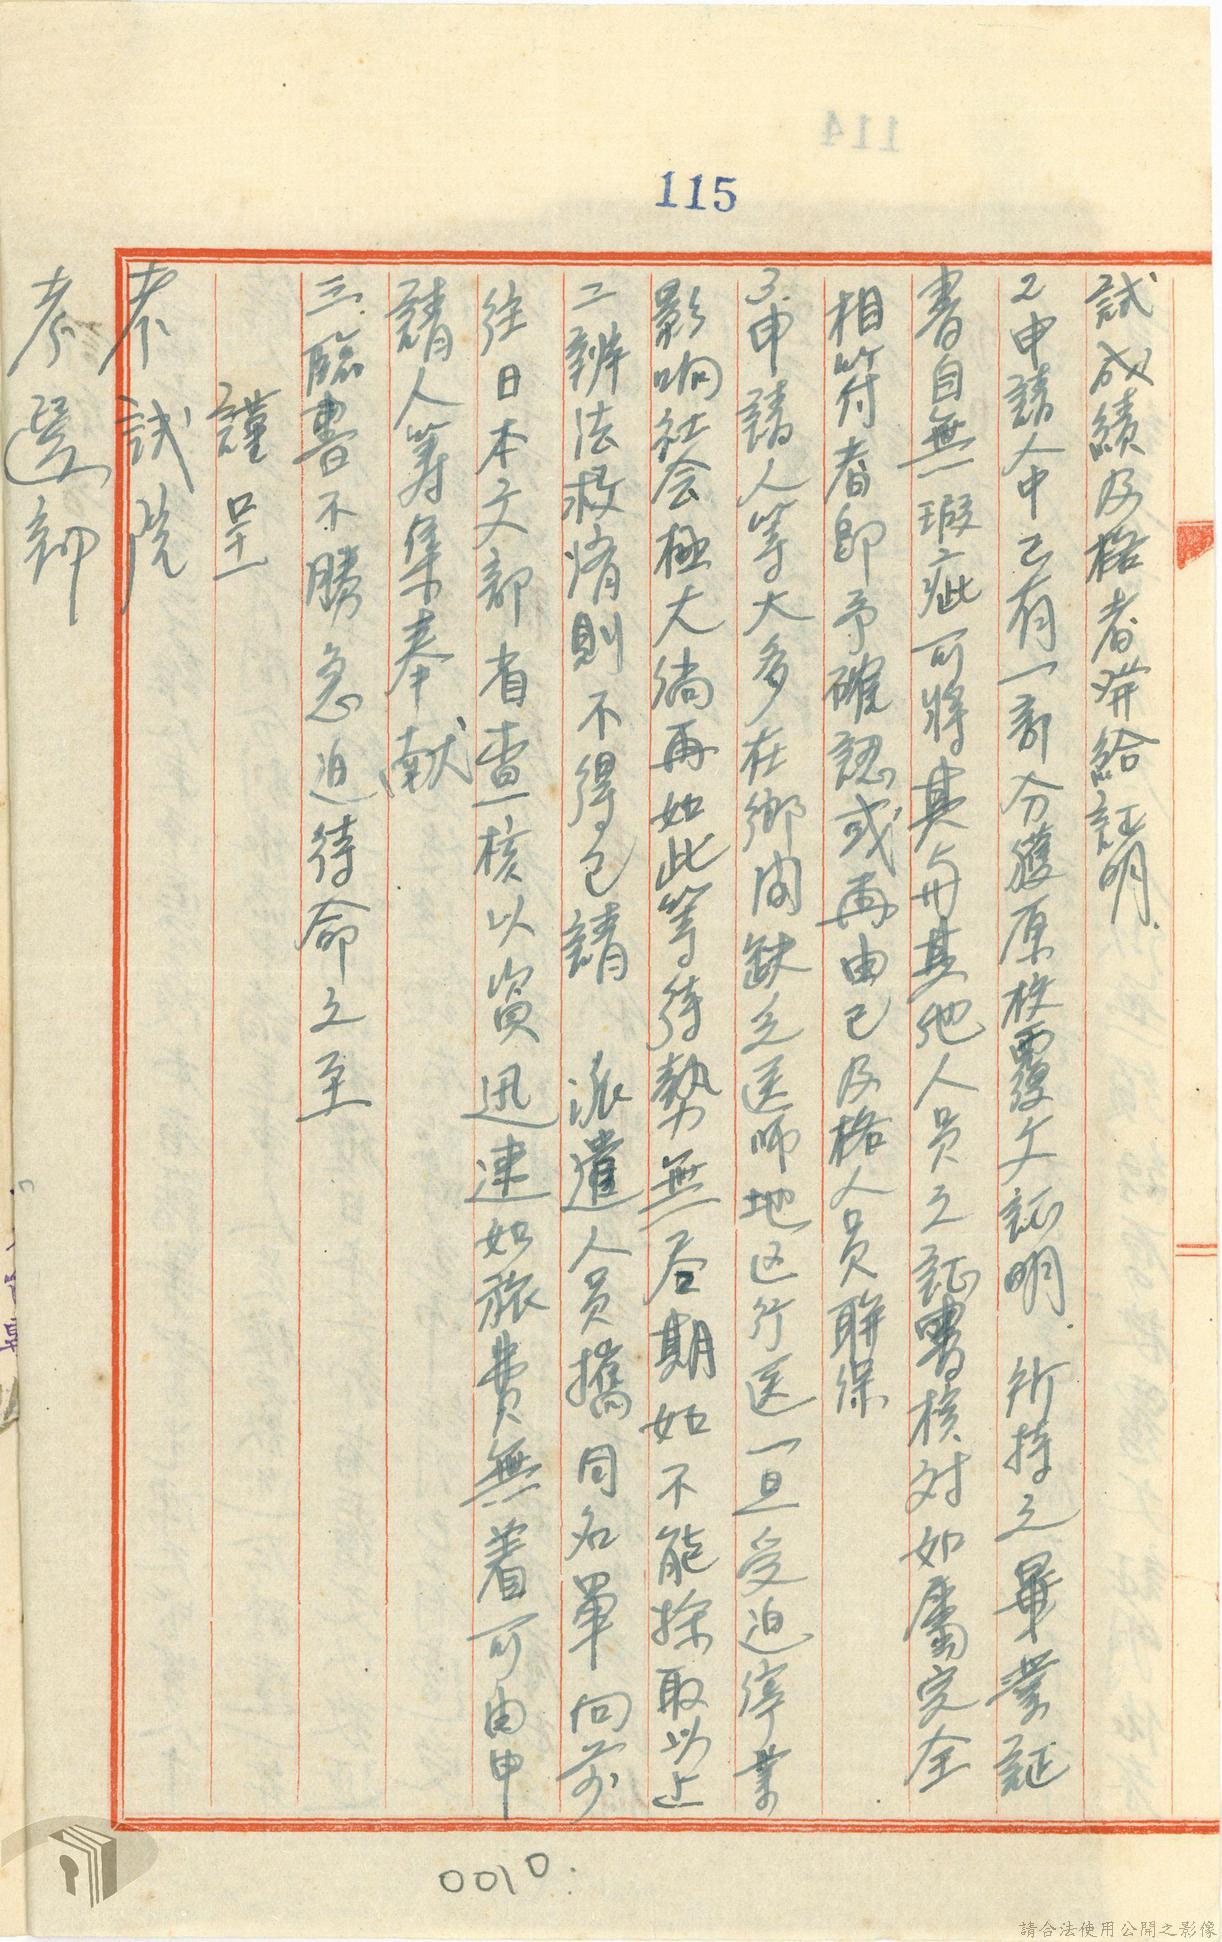 115
試成績及格者発給証明.
2.申請人中已有一部分獲原校覆文証明.所持之畢業証
書自無瑕疵可將其与其他人員之証書核对如属完全
相符者即予確認或再由已及格人員联保
3.申請人等大多在鄉间缺乏医师地区行医一旦受迫停業
影响社会極大倘再如此等待勢無后期如不能採取以上
二辦法救济則不得已請 派遣人員攜同名單向前
往日本文部省查核以資迅速如旅费無着可由申
請人筹集奉献
三.臨書不勝急迫待命之至
謹呈
考試院
考選部
0010.
請合法使用公開之影像